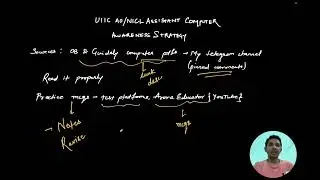 UIIC AO/NICL ASSISTANT COMPUTER
AWARENESS STRATEGY
Sources: OB & Guidely computer pdfs → My telegram channel
(pinned comments)
link
desc.
Read it properly
Practice mcqs → test platforms, Arora Educator {YouTube}
→ Notes
Revise
mcqs